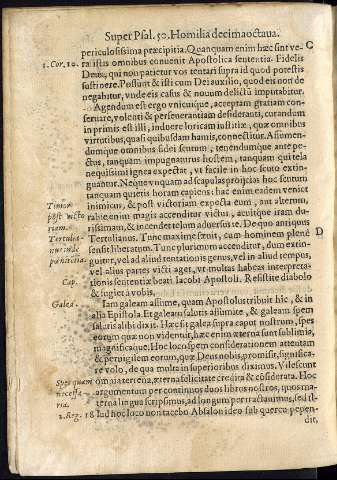 Super Psal. 50. Homilia decimaoctaua.
periculosissima præcipitia. Quanquam enim hæc sint ve- C
1. Cor. 10. ra istis omnibus conuenit Apostolica sententia. Fidelis
Deus, qui non patietur vos tentari supra id quod potestis
sustinere. Possum & isti cum Dei auxilio, quod eis non de
negabitur, vnde eis casus & nouum delictũ imputabitur.
Agendum est ergo vnicuique, acceptam gratiam con-
seruare, volenti & perseuerantiam desideranti, curandum
in primis est illi, induere loricam iustitiæ, quæ omnibus
virtutibus, quasi quibusdam hamis, connectitur. Assumen-
dumque omnibus fidei scutum, tenendumque ante pe-
ctus, tanquam impugnaturus hostem, tanquam qui tela
nequissimi ignea expectat, vt facile in hoc scuto extin-
guantur. Neque vnquam ad scapulas projicias hoc scutum
tanquam quietis horam capiens: hac enim eadem venict
Timor inimicus, & post victoriam expecta eum, aut alterum,
post victo rabie enim magis accenditur victus, acuitque iram du-
riam. rissimam, & incendet telum aduersus te. De quo antiquus
Tertulia- Tertulianus. Tunc maxime sæuit, cum hominem plenè D
nus in de sensit liberatum. Tunc plurimum accenditur, dum extin-
pœnitētia. guitur, vel ad aliud tentationis genus, vel in aliud tempus,
vel alius partes victi aget, vt multas habeas interpreta-
Cap. tionis sententiæ beati Iacobi Apostoli. Resistite diabolo
& fugiet à vobis.
Galea. Iam galeam assume, quam Apostolus tribuit hic, & in
alia Epistola. Et galeam salutis assumite, & galeam spem
salutis alibi dixit. Hæc sit galea supra caput nostrum, spes
eorum quæ non videntur, hæc enim æterna sunt sublimia,
magnificaque. Hoc loco spem considerationem attentam
& peruigilem eorum, quæ Deus nobis promisit, significa-
re volo, de qua multa in superioribus diximus. Vilescunt
Spes quam omnia terrena, æterna felicitate credita & cōsiderata. Hoc
necessa- argumentum per continuos duos libros nostros, quos ma-
ria. terna lingua scripsimus, ad longum pertractauimus, sed il-
2. Reg. 18 lud hoc loco non tacebo Absalon ideo sub quercu pepen-
dit,